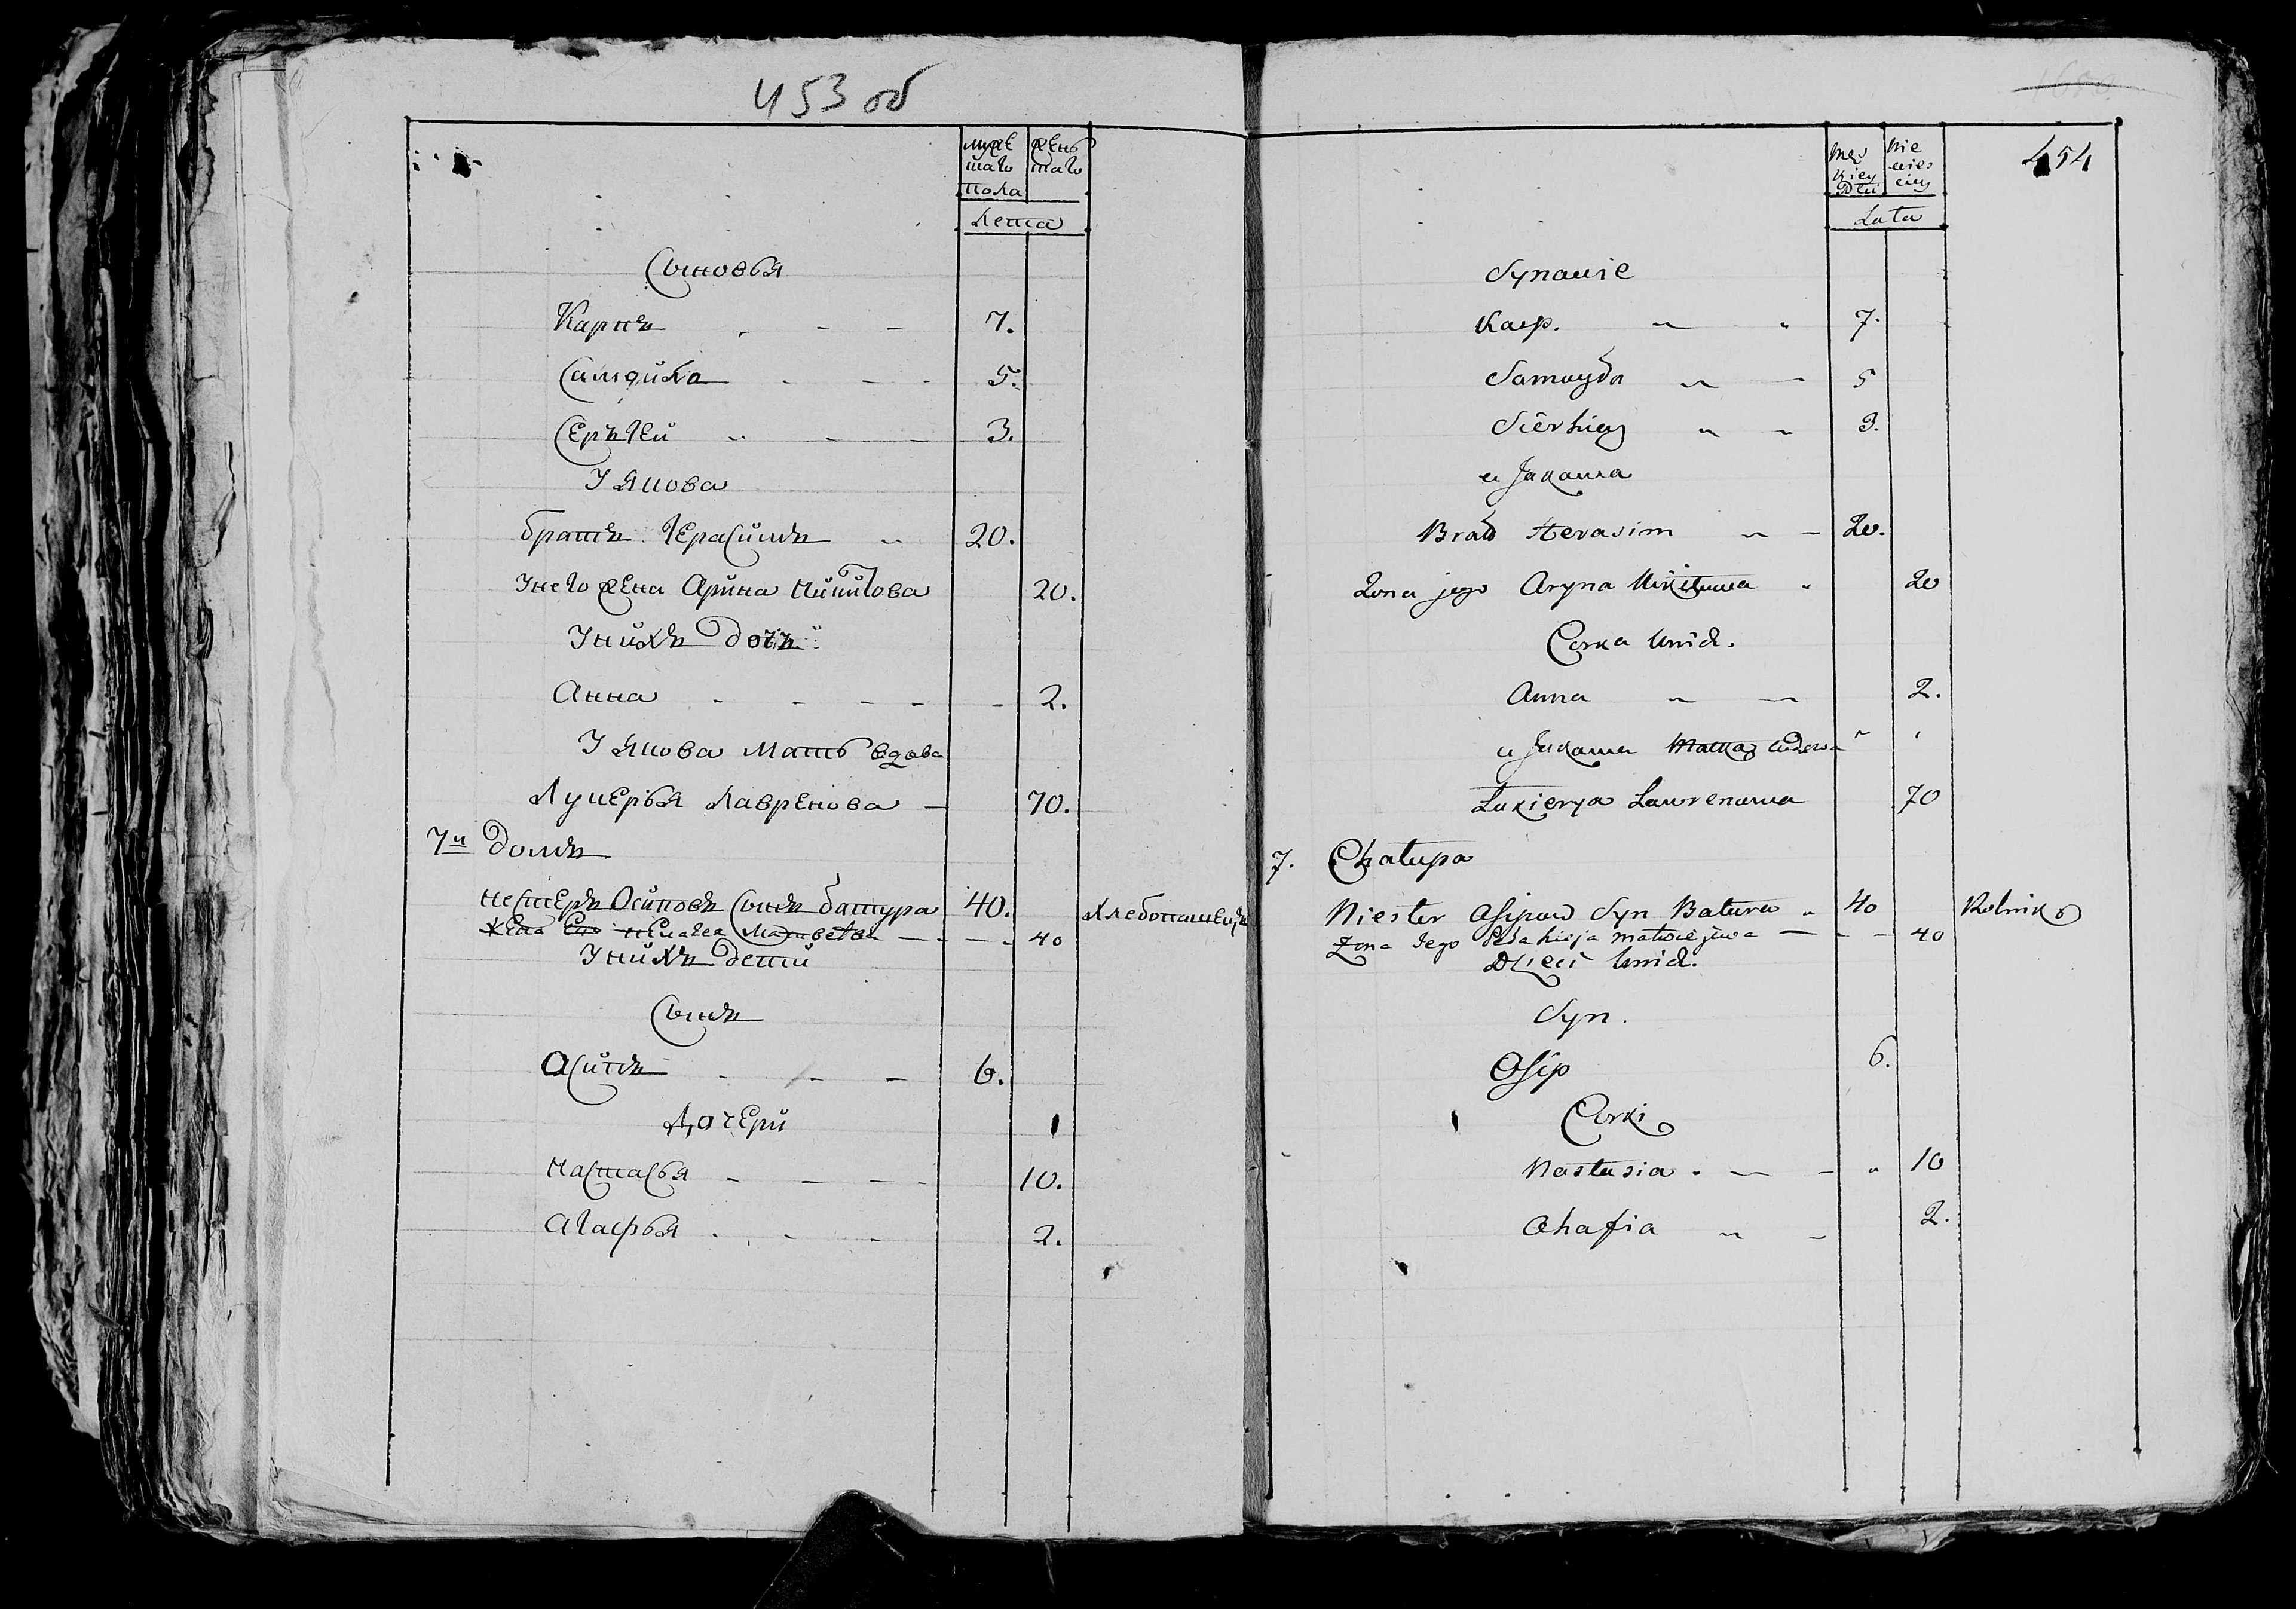 453 об
мужескаго пола
женскаго
Лета
Сыновья
Карпъ 7.
Самуйла 5.
Серъгей 3.
У Якова
братъ Герасимъ 20.
У него жена Арина Никитова 20.
У нихъ дочь
Анна 2.
У Якова мать вдова
Лукерья Лавренова 70.
7й домъ
Нестеръ Осиповъ сынъ батура 40. Хлебопашецъ
Жена Его Пелагея Матвеева 40
У нихъ дети
Сынъ
Осипъ 6.
Дочери
Настасья 10.
Агафья 2.
454
Męs kiey Płci
Nie wies ciey
Lata
Synowie
Karp. 7.
Samuyła 5
Sierhiey 3.
u Jakowa
Brad Herasim 20.
Zona jego Aryna Mikitowa 20
Corka Unich.
Anna 2.
u Jakowa Matka wdowa
Łukierya Lawrenowa 70
7. Chałupa
Niester Osipow Syn Batura 40 Rolnik
Zona Jego Pełahieja Matwiejewa 40
Dzieci Unich.
Syn.
Osip 6.
Corki
Nastasia 10
Ahafia 2.